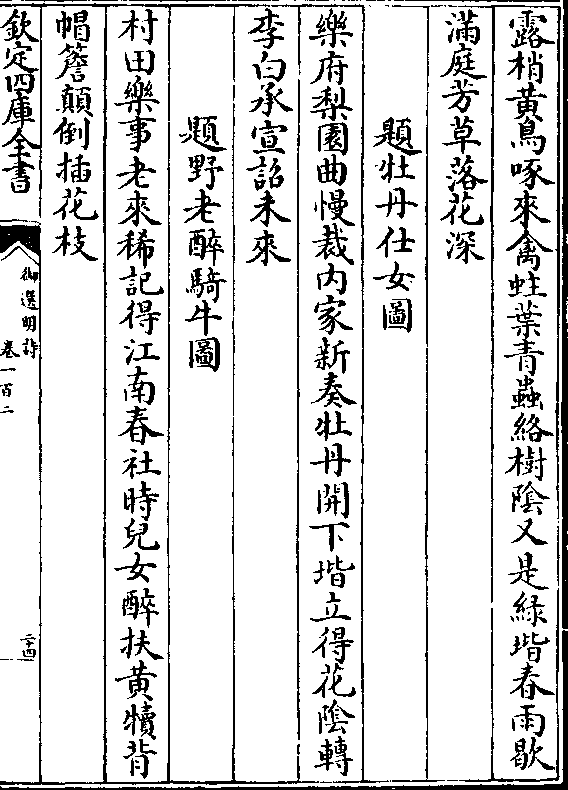 露梢黄鳥啄來禽蛀葉青蟲絡樹陰又是緑堦春雨歇
滿庭芳草落花深
題牡丹仕女圖
樂府梨園曲慢裁内家新奏牡丹開下堦立得花陰轉
李白承宣詔未來
題野老醉騎牛圖
村田樂事老來稀記得江南春社時兒女醉扶黄犢背
帽簷顛倒插花枝
欽定四庫全書
御選明詩
卷一百二
三十四